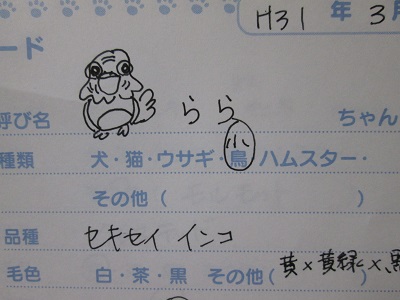 H31 年 3月
ード
呼び名 らら ちゃん
小
種類 犬・猫・ウサギ・鳥・ハムスター・
その他(
品種 セキセイ インコ
毛色 白・茶・黒 その他(黄×黄緑×黒